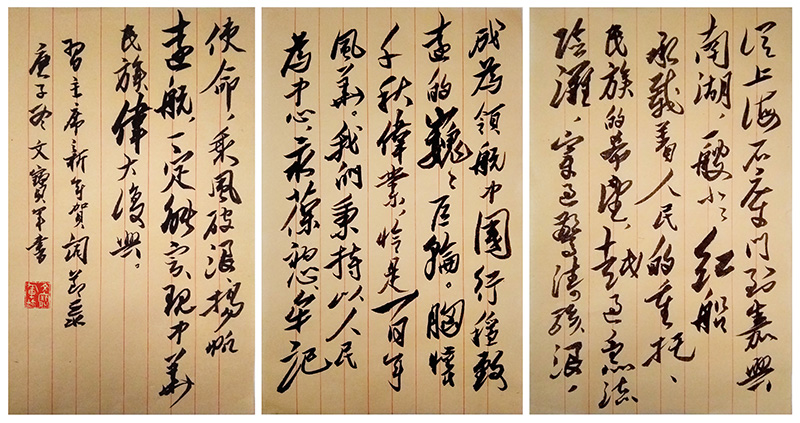 從上海石庫門到嘉興
南湖，一艘小々紅船
承載着人民的重托、
民族的希望，越過急流
險灘，穿過驚濤駭浪，
成為領航中國行穩致
遠的巍々巨輪。胸懷
千秋偉業，恰是百年
風華。我們秉持以人民
為中心，永葆初心、牢記
使命，乘風破浪揚帆
遠航，一定能實現中華
民族偉大復興。
習主席新年賀詞節錄
庚子冬文寶軍書